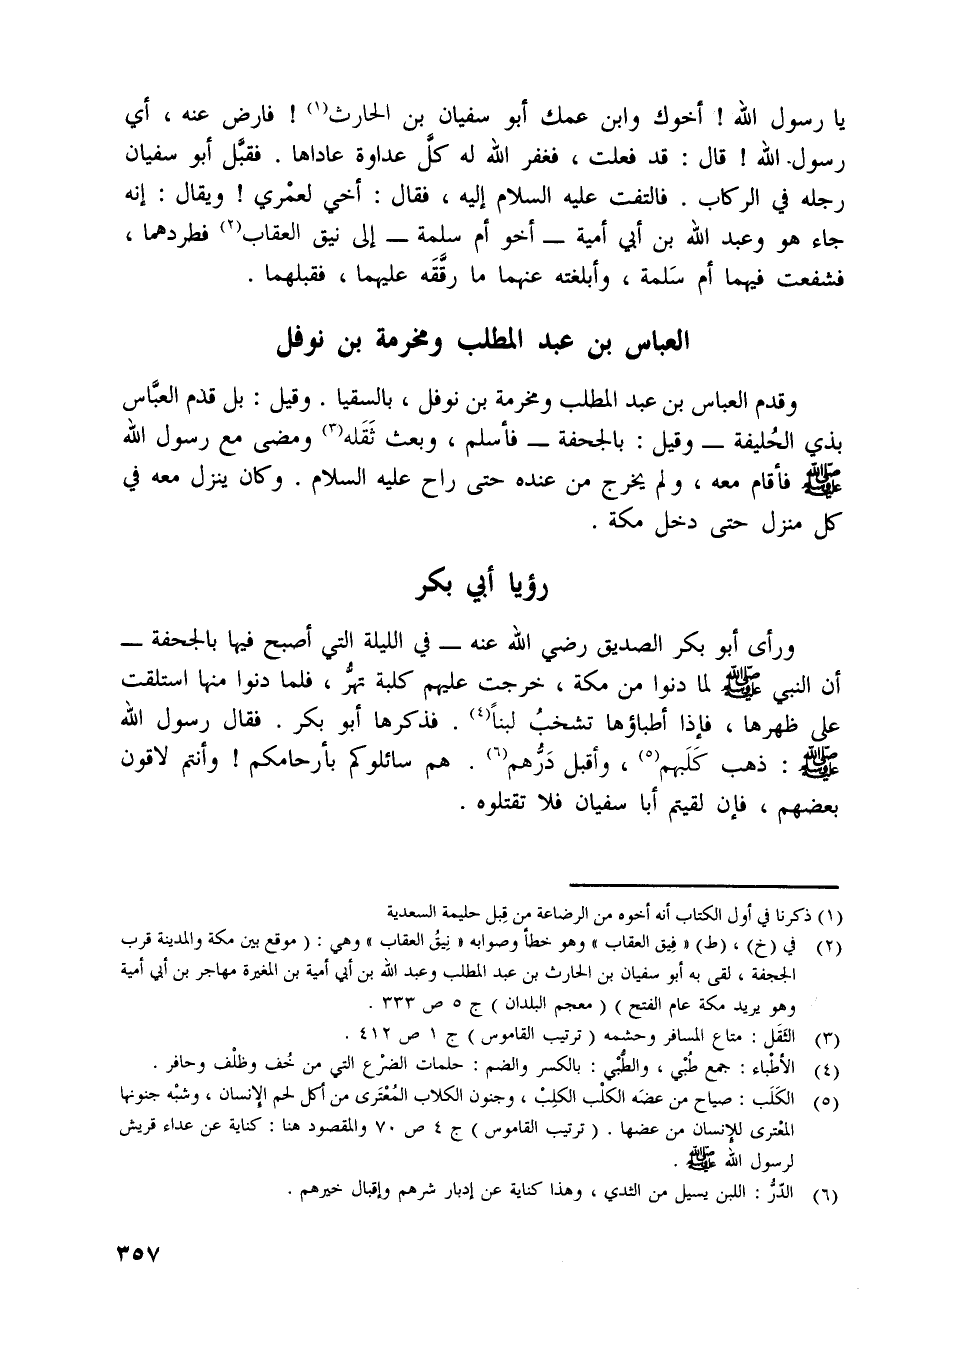 يا رسول الله ! أخوك وابن عمك أبو سفيان بن الحارث(١) ! فارض عنه ، أي
رسول الله ! قال : قد فعلت ، فغفر الله له كلَّ عداوة عاداها . فقبَّل أبو سفيان
رجله في الركاب . فالتفت عليه السلام إليه ، فقال : أخي لعمْري ! ويقال : إنه
جاء هو وعبد الله بن أبي أمية — أخو أم سلمة — إلى نيق العقاب(٢) فطردهما ،
فشفعت فيهما أم سَلمة ، وأبلغته عنهما ما رقَّقَه عليهما ، فقبلهما .
العباس بن عبد المطلب ومخرمة بن نوفل
وقدم العباس بن عبد المطلب ومخرمة بن نوفل ، بالسقيا . وقيل : بل قدم العبَّاس
بذي الحُليفة — وقيل : بالجحفة — فأسلم ، وبعث ثَقَله(٣) ومضى مع رسول الله
ﷺ فأقام معه ، ولم يخرج من عنده حتى راح عليه السلام . وكان ينزل معه في
كل منزل حتى دخل مكة .
رؤيا أبي بكر
ورأى أبو بكر الصديق رضي الله عنه — في الليلة التي أصبح فيها بالجحفة —
أن النبي ﷺ لما دنوا من مكة ، خرجت عليهم كلبة تهرُّ ، فلما دنوا منها استلقت
على ظهرها ، فإذا أطباؤها تشخبُ لبناً(٤) . فذكرها أبو بكر . فقال رسول الله
ﷺ : ذهب كَلَبهم(٥) ، وأقبل دَرُّهم(٦) . هم سائلوكم بأرحامكم ! وأنتم لاقون
بعضهم ، فإن لقيتم أبا سفيان فلا تقتلوه .
(١) ذكرنا في أول الكتاب أنه أخوه من الرضاعة من قِبل حليمة السعدية
(٢) في (خ) ، (ط) « فِيق العقاب » وهو خطأ وصوابه « نِيقُ العقاب » وهي : ( موقع بين مكة والمدينة قرب
الجحفة ، لقى به أبو سفيان بن الحارث بن عبد المطلب وعبد الله بن أبي أمية بن المغيرة مهاجر بن أبي أمية
وهو يريد مكة عام الفتح ) ( معجم البلدان ) ج ٥ ص ٣٣٣ .
(٣) الثَقَل : متاع المسافر وحشمه ( ترتيب القاموس ) ج ١ ص ٤١٢ .
(٤) الأطْباء : جمع طُبْي ، والطُّبْي : بالكسر والضم : حلمات الضرْع التي من خُف وظلْف وحافر .
(٥) الكَلَب : صياح من عضه الكلْب الكلِبْ ، وجنون الكلاب المُعْتَرى من أكل لحم الإنسان ، وشبْه جنونها
المعْترى للإنسان من عضها . ( ترتيب القاموس ) ج ٤ ص ٧٠ والمقصود هنا : كناية عن عداء قريش
لرسول الله ﷺ .
(٦) الدّرُّ : اللبن يسيل من الثدي ، وهذا كناية عن إدبار شرهم وإقبال خيرهم .
٣٥٧